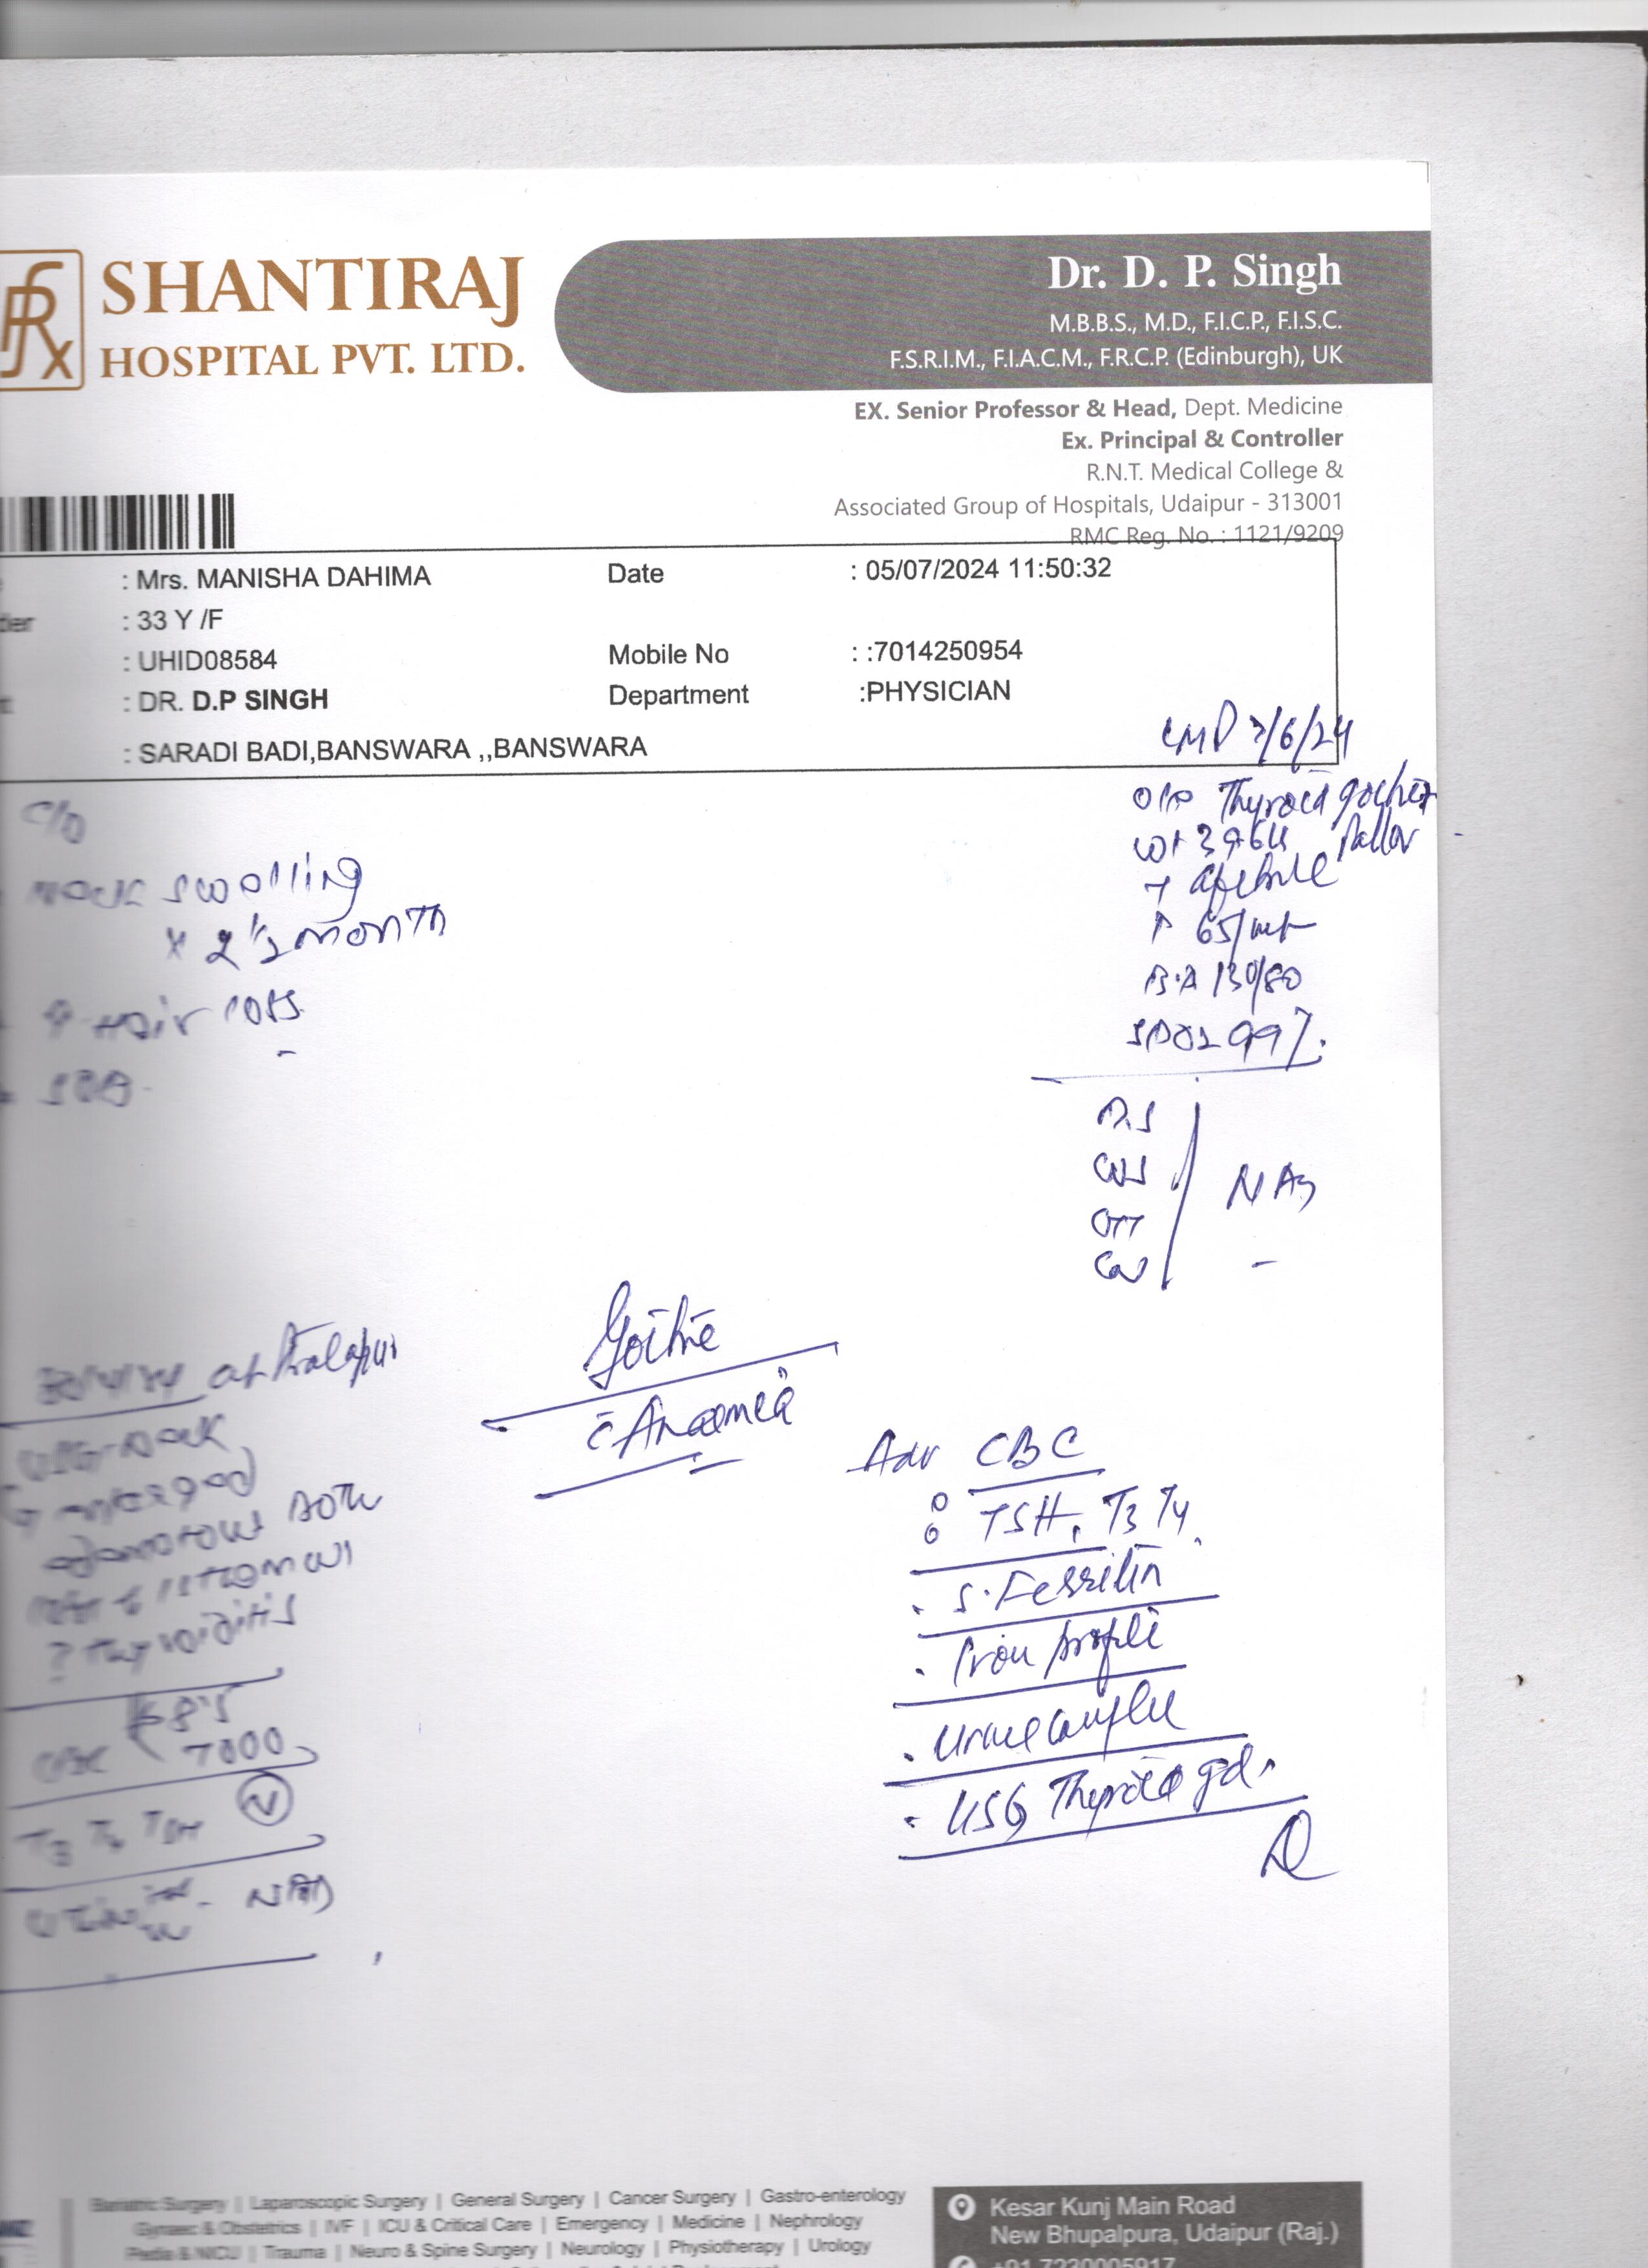 SHANTIRAJ
HOSPITAL PVT. LTD.
Dr. D. P. Singh
M.B.B.S., M.D., F.I.C.P., F.I.S.C.
F.S.R.I.M., F.I.A.C.M., F.R.C.P. (Edinburgh), UK
EX. Senior Professor & Head, Dept. Medicine
Ex. Principal & Controller
R.N.T. Medical College &
Associated Group of Hospitals, Udaipur - 313001
RMC Reg. No. : 1121/9209
: Mrs. MANISHA DAHIMA Date : 05/07/2024 11:50:32
: 33 Y /F
: UHID08584 Mobile No : :7014250954
: DR. D.P SINGH Department :PHYSICIAN
: SARADI BADI,BANSWARA ,,BANSWARA
LMP /6/24
Thyroid
Pallor
afebrile
65/mt
130/80
SPO2 99%
C/O
Neck swelling
x 2 1/2 month
Hair loss
SOB
Goitre
c̄ Anaemia
Adv CBC
TSH, T3 T4
S. Ferritin
Iron profile
Urine
USG Thyroid gd.
at
USG-Neck
? Thyroiditis
8.5
CBC 7000
T3 T4 TSH N
NAD
Bariatric Surgery | Laparoscopic Surgery | General Surgery | Cancer Surgery | Gastro-enterology
Gynaec & Obstetrics | IVF | ICU & Critical Care | Emergency | Medicine | Nephrology
Pedia & NICU | Trauma | Neuro & Spine Surgery | Neurology | Physiotherapy | Urology
Kesar Kunj Main Road
New Bhupalpura, Udaipur (Raj.)
+91 7230005917